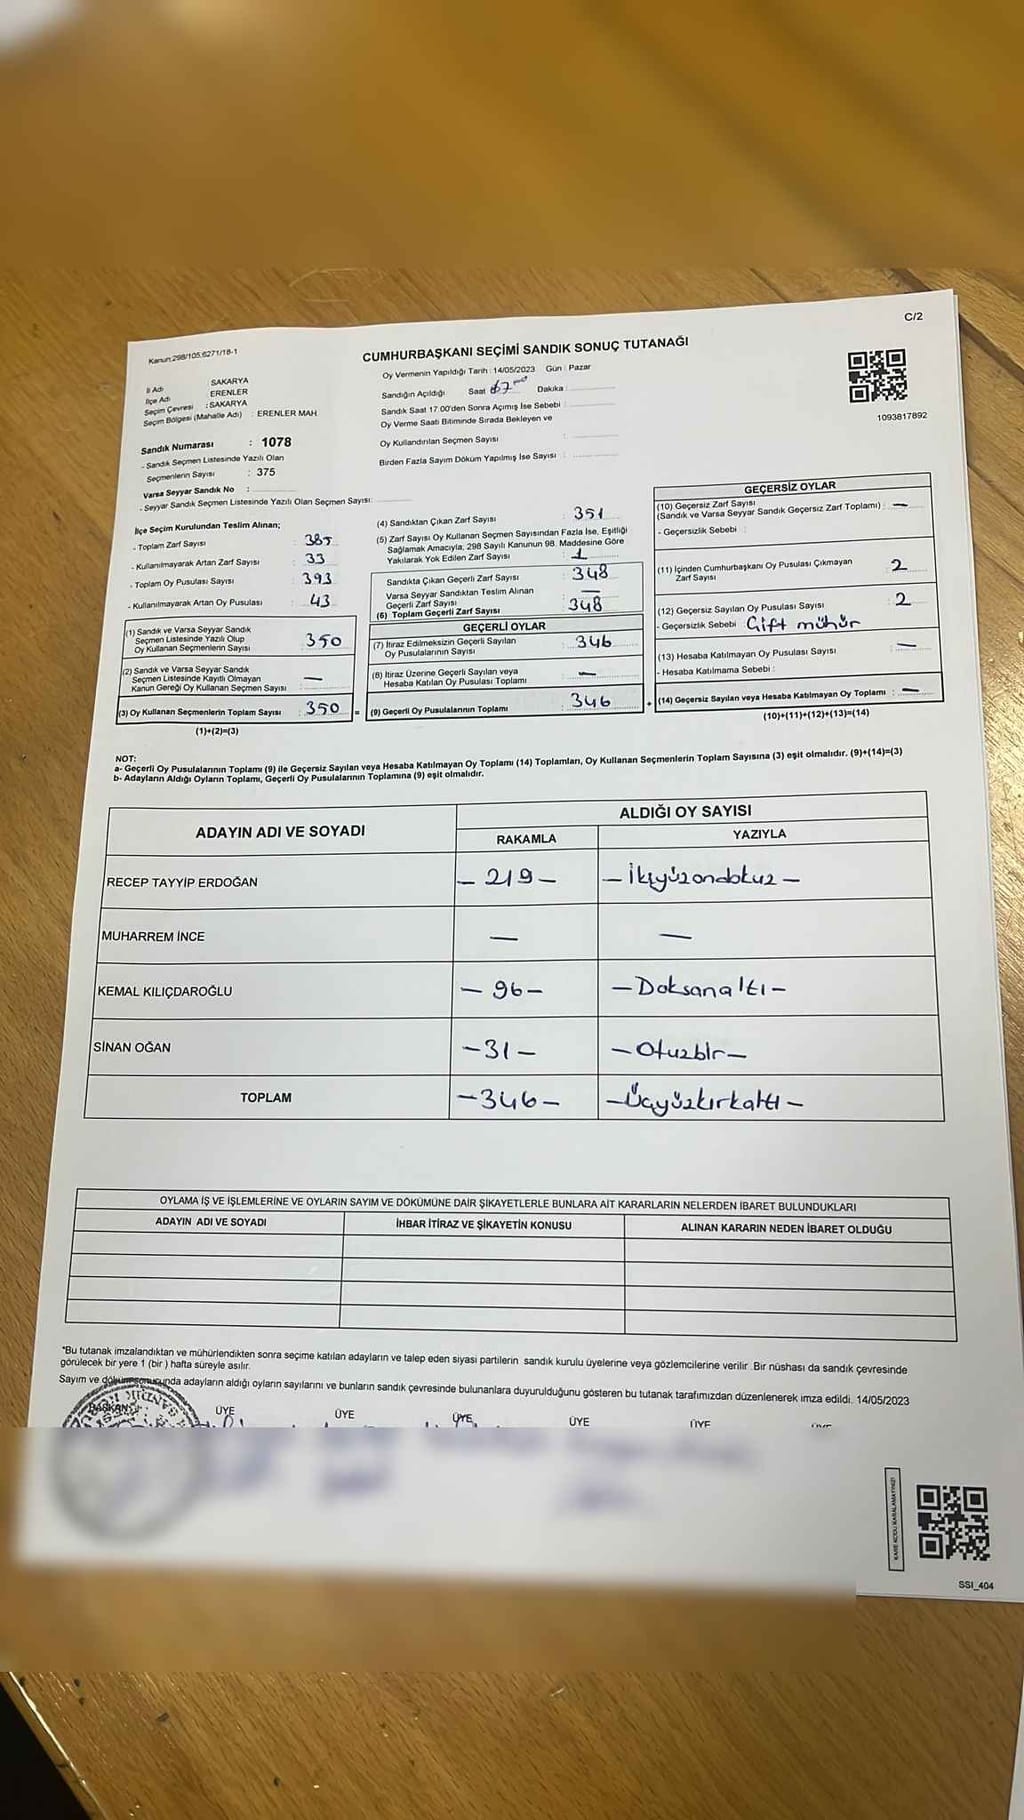 C/2
Kanun:298/105.6271/18-1
CUMHURBAŞKANI SEÇİMİ SANDIK SONUÇ TUTANAĞI
İl Adı SAKARYA
İlçe Adı ERENLER
Seçim Çevresi : SAKARYA
Seçim Bölgesi (Mahalle Adı) : ERENLER MAH
Sandık Numarası : 1078
- Sandık Seçmen Listesinde Yazılı Olan
Seçmenlerin Sayısı : 375
Varsa Seyyar Sandık No :
- Seyyar Sandık Seçmen Listesinde Yazılı Olan Seçmen Sayısı:
Oy Vermenin Yapıldığı Tarih : 14/05/2023 Gün : Pazar
Sandığın Açıldığı Saat Dakika
Sandık Saat 17.00'den Sonra Açımış İse Sebebi :
Oy Verme Saati Bitiminde Sırada Bekleyen ve
Oy Kullandırılan Seçmen Sayısı :
Birden Fazla Sayım Döküm Yapılmış İse Sayısı :
1093817892
İlçe Seçim Kurulundan Teslim Alınan;
- Toplam Zarf Sayısı : 385
- Kullanılmayarak Artan Zarf Sayısı : 33
- Toplam Oy Pusulası Sayısı : 393
- Kullanılmayarak Artan Oy Pusulası : 43
(1) Sandık ve Varsa Seyyar Sandık
Seçmen Listesinde Yazılı Olup
Oy Kullanan Seçmenlerin Sayısı : 350
(2) Sandık ve Varsa Seyyar Sandık
Seçmen Listesinde Kayıtlı Olmayan
Kanun Gereği Oy Kullanan Seçmen Sayısı : —
(3) Oy Kullanan Seçmenlerin Toplam Sayısı : 350 =
(1)+(2)=(3)
(4) Sandıktan Çıkan Zarf Sayısı : 351
(5) Zarf Sayısı Oy Kullanan Seçmen Sayısından Fazla İse, Eşitliği
Sağlamak Amacıyla, 298 Sayılı Kanunun 98. Maddesine Göre
Yakılarak Yok Edilen Zarf Sayısı : 1
Sandıkta Çıkan Geçerli Zarf Sayısı : 348
Varsa Seyyar Sandıktan Teslim Alınan
Geçerli Zarf Sayısı : —
(6) Toplam Geçerli Zarf Sayısı : 348
GEÇERLİ OYLAR
(7) İtiraz Edilmeksizin Geçerli Sayılan
Oy Pusulalarının Sayısı : 346
(8) İtiraz Üzerine Geçerli Sayılan veya
Hesaba Katılan Oy Pusulası Toplamı : —
(9) Geçerli Oy Pusulalarının Toplamı : 346 +
GEÇERSİZ OYLAR
(10) Geçersiz Zarf Sayısı
(Sandık ve Varsa Seyyar Sandık Geçersiz Zarf Toplamı) : —
- Geçersizlik Sebebi :
(11) İçinden Cumhurbaşkanı Oy Pusulası Çıkmayan
Zarf Sayısı : 2
(12) Geçersiz Sayılan Oy Pusulası Sayısı : 2
- Geçersizlik Sebebi Çift mühür
(13) Hesaba Katılmayan Oy Pusulası Sayısı : —
- Hesaba Katılmama Sebebi :
(14) Geçersiz Sayılan veya Hesaba Katılmayan Oy Toplamı : —
(10)+(11)+(12)+(13)=(14)
NOT:
a- Geçerli Oy Pusulalarının Toplamı (9) ile Geçersiz Sayılan veya Hesaba Katılmayan Oy Toplamı (14) Toplamları, Oy Kullanan Seçmenlerin Toplam Sayısına (3) eşit olmalıdır. (9)+(14)=(3)
b- Adayların Aldığı Oyların Toplamı, Geçerli Oy Pusulalarının Toplamına (9) eşit olmalıdır.
ADAYIN ADI VE SOYADI
ALDIĞI OY SAYISI
RAKAMLA YAZIYLA
RECEP TAYYİP ERDOĞAN – 219 – – İkiyüzondokuz –
MUHARREM İNCE — —
KEMAL KILIÇDAROĞLU – 96 – – Doksanaltı –
SİNAN OĞAN – 31 – – Otuzbir –
TOPLAM – 346 – – Üçyüzkırkaltı –
OYLAMA İŞ VE İŞLEMLERİNE VE OYLARIN SAYIM VE DÖKÜMÜNE DAİR ŞİKAYETLERLE BUNLARA AİT KARARLARIN NELERDEN İBARET BULUNDUKLARI
ADAYIN ADI VE SOYADI İHBAR İTİRAZ VE ŞİKAYETİN KONUSU ALINAN KARARIN NEDEN İBARET OLDUĞU
*Bu tutanak imzalandıktan ve mühürlendikten sonra seçime katılan adayların ve talep eden siyasi partilerin sandık kurulu üyelerine veya gözlemcilerine verilir. Bir nüshası da sandık çevresinde
görülecek bir yere 1 (bir) hafta süreyle asılır.
Sayım ve döküm sonucunda adayların aldığı oyların sayılarını ve bunların sandık çevresinde bulunanlara duyurulduğunu gösteren bu tutanak tarafımızdan düzenlenerek imza edildi. 14/05/2023
BAŞKAN ÜYE ÜYE ÜYE ÜYE ÜYE ÜYE
KARE KODU KARALAMAYINIZ!
SSI_404